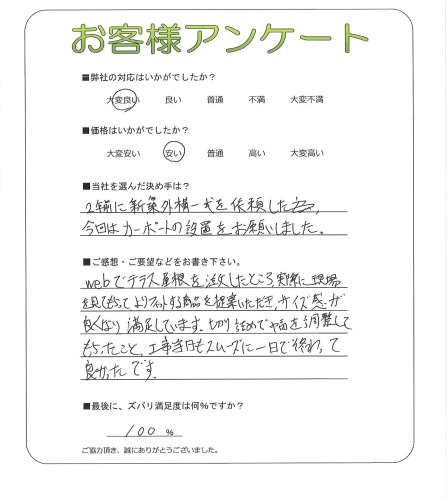 お客様アンケート
■弊社の対応はいかがでしたか?
大変良い 良い 普通 不満 大変不満
■価格はいかがでしたか?
大変安い 安い 普通 高い 大変高い
■当社を選んだ決め手は?
2年前に新築外構一式を依頼した
今回はカーポートの設置をお願いしました。
■ご感想・ご要望などをお書き下さい。
webでテラス屋根を注文したところ実際に現場
を見てもらってよりフィットする商品を提案いただき、サイズ感が
良くなり満足しています。切り詰めで巾を調整して
もらったこと、工事当日もスムーズに一日で終わって
良かったです。
■最後に、ズバリ満足度は何%ですか?
100 %
ご協力頂き、誠にありがとうございました。